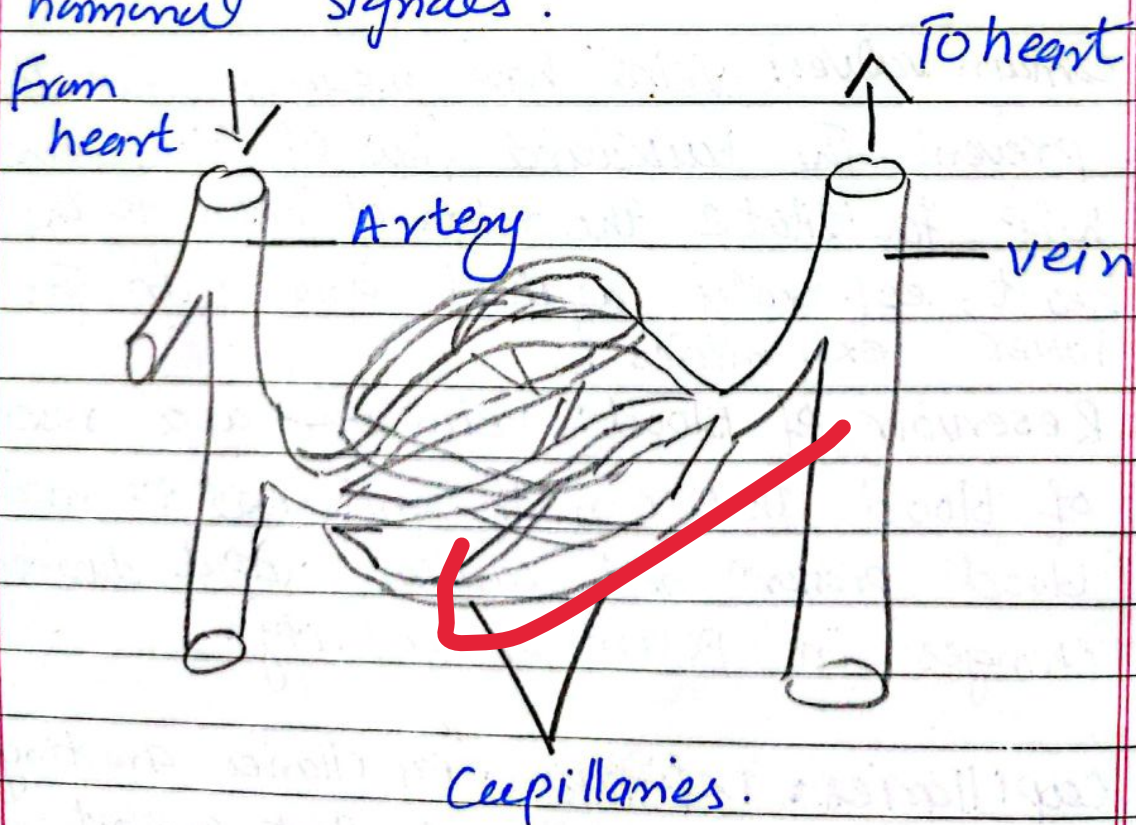 signals.
From
heart
To heart
Artery
vein
Capillaries.